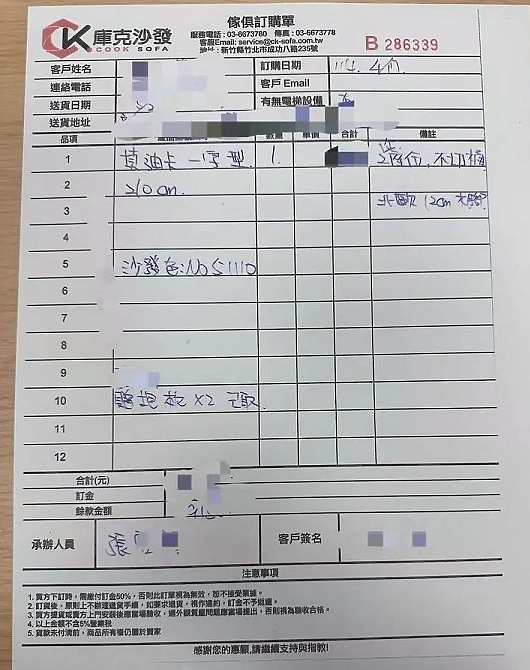 CK 庫克沙發
COOK SOFA
傢俱訂購單
服務電話:03-6673780 傳真:03-6673778
客服Email: service@ck-sofa.com.tw
地址:新竹縣竹北市成功八路235號
B 286339
客戶姓名 訂購日期
連絡電話 客戶 Email
送貨日期 有無電梯設備
送貨地址
品項 數量 單價 合計 備註
1 一字型 1. 不切櫃
2 210cm.
3 北歐12cm木腳
4
5 沙發色:No 51110
6
7
8
9
10 抱枕 x2
11
12
合計(元)
訂金
餘款金額
承辦人員 張 客戶簽名
注意事項
1. 買方下訂時,需繳付訂金50%,否則此訂單視為無效,恕不接受票據。
2. 訂貨後,原則上不辦理退貨手續,如要求退貨,視作違約,訂金不予退還。
4. 以上金額不含5%營業稅
5. 貨款未付清前,商品所有權仍屬於賣家
感謝您的惠顧,請繼續支持與指教!